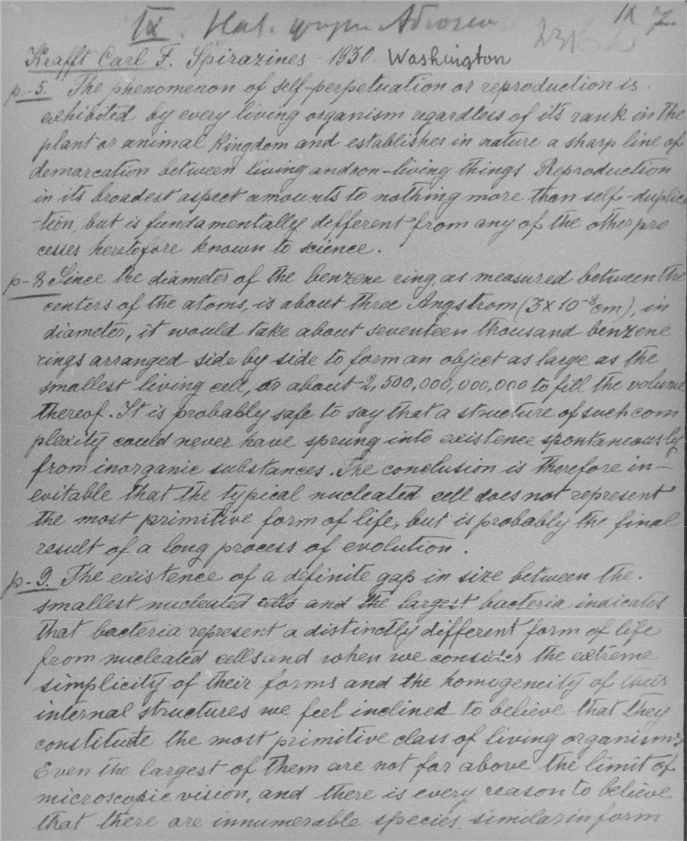 IX.
IX 7.
Krafft Carl F. Spirazines 1930. Washington
p-5. The phenomenon of self-perpetuation or reproduction is
exhibited by every living organism regardless of its rank in the
plant or animal Kingdom and establishes in nature a sharp line of
demarcation between living and non-living things Reproduction
in its broadest aspect amounts to nothing more than self-duplica
-tion, but is fundamentally different from any of the other pro
cesses heretofore known to science.
p-8 Since the diameter of the benzene ring, as measured between the
centers of the atoms, is about three Angstrom (3×10⁻⁸cm), in
diameter, it would take about seventeen thousand benzene
rings arranged side by side to form an object as large as the
smallest living cell, or about 2,500,000,000,000 to fill the volume
thereof. It is probably safe to say that a structure of such com
plexity could never have sprung into existence spontaneously
from inorganic substances. The conclusion is therefore in-
evitable that the typical nucleated cell does not represent
the most primitive form of life, but is probably the final
result of a long process of evolution.
p-9. The existence of a definite gap in size between the
smallest nucleated cells and the largest bacteria indicates
that bacteria represent a distinctly different form of life
from nucleated cells and when we consider the extreme
simplicity of their forms and the homogeneity of their
internal structures we feel inclined to believe that they
constitute the most primitive class of living organisms
Even the largest of them are not far above the limit of
microscopic vision, and there is every reason to believe
that there are innumerable species similar in form